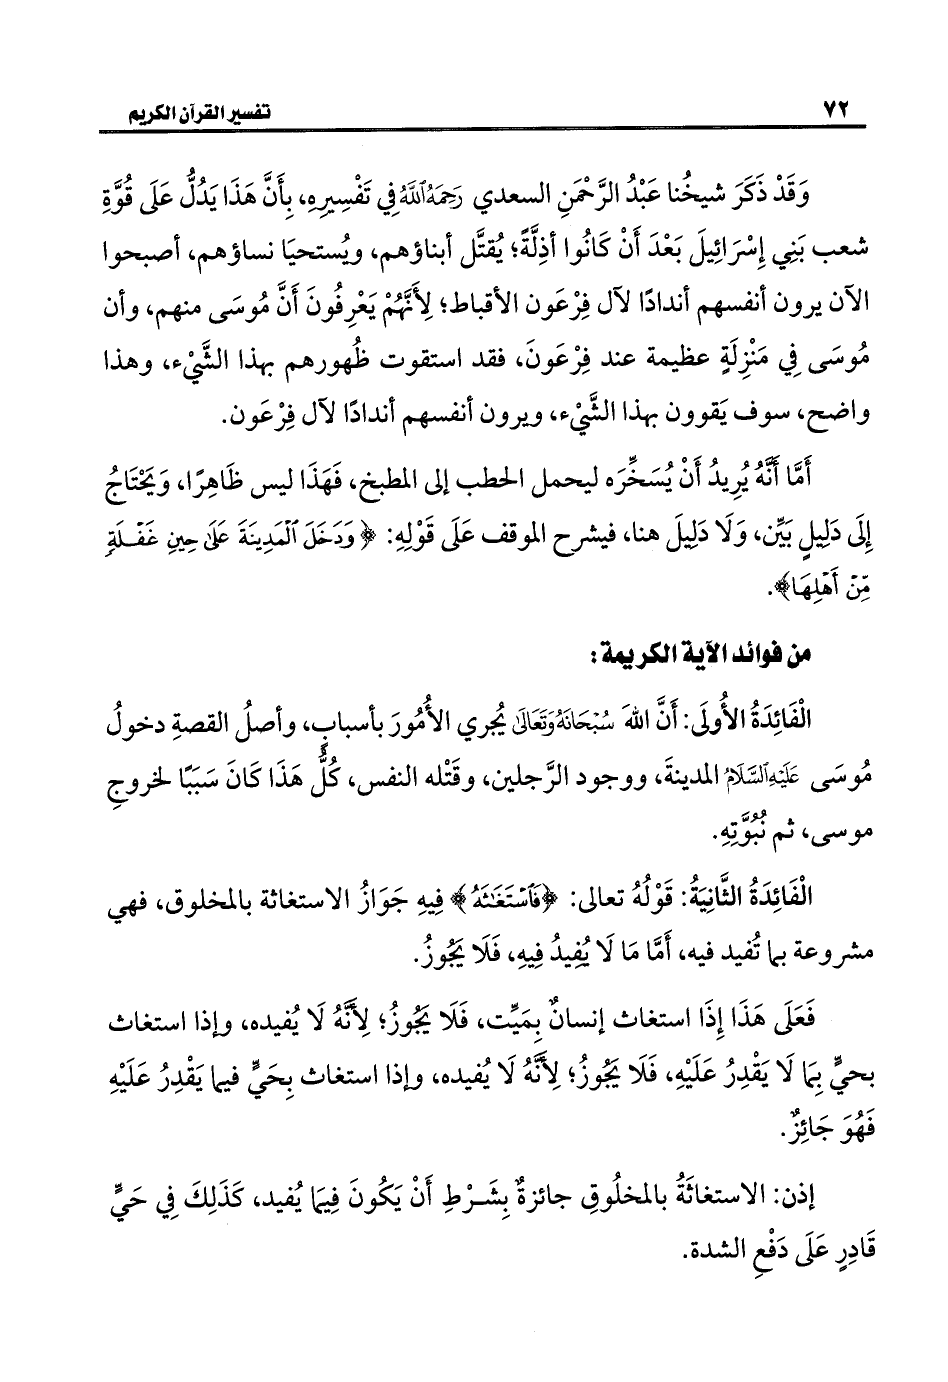 ٧٢ تفسير القرآن الكريم
وَقَدْ ذَكَرَ شيخُنا عَبْدُ الرَّحْمَنِ السعدي رَحِمَهُ ٱللَّهُ فِي تَفْسِيرِهِ، بِأَنَّ هَذَا يَدُلُّ عَلَى قُوَّةِ
شعب بَنِي إِسْرَائِيلَ بَعْدَ أَنْ كَانُوا أذِلَّةً؛ يُقتَّل أبناؤهم، ويُستحيَا نساؤهم، أصبحوا
الآن يرون أنفسهم أندادًا لآل فِرْعَون الأقباط؛ لِأَنَّهُمْ يَعْرِفُونَ أَنَّ مُوسَى منهم، وأن
مُوسَى فِي مَنْزِلَةٍ عظيمة عند فِرْعَونَ، فقد استقوت ظُهورهم بهذا الشَّيْء، وهذا
واضح، سوف يَقوون بهذا الشَّيْء، ويرون أنفسهم أندادًا لآل فِرْعَون.
أَمَّا أَنَّهُ يُرِيدُ أَنْ يُسَخِّرَه ليحمل الحطب إلى المطبخ، فَهَذَا ليس ظَاهِرًا، وَيَحْتَاجُ
إِلَى دَلِيلٍ بَيِّن، وَلَا دَلِيلَ هنا، فيشرح الموقف عَلَى قَوْلِهِ: ﴿وَدَخَلَ ٱلْمَدِينَةَ عَلَىٰ حِينِ غَفْلَةٍ
مِّنْ أَهْلِهَا﴾.
من فوائد الآية الكريمة:
الْفَائِدَةُ الأُولَى: أَنَّ اللهَ سُبْحَانَهُ وَتَعَالَى يُجري الأُمُورَ بأسبابٍ، وأصلُ القصةِ دخولُ
مُوسَى عَلَيْهِ ٱلسَّلَامُ المدينةَ، ووجود الرَّجلين، وقَتْله النفس، كُلُّ هَذَا كَانَ سَبَبًا لخروجِ
موسى، ثم نُبُوَّتِهِ.
الْفَائِدَةُ الثَّانِيَةُ: قَوْلُهُ تعالى: ﴿فَٱسْتَغَٰثَهُ﴾ فِيهِ جَوَازُ الاستغاثة بالمخلوق، فهي
مشروعة بما تُفيد فيه، أَمَّا مَا لَا يُفِيدُ فِيهِ، فَلَا يَجُوزُ.
فَعَلَى هَذَا إِذَا استغاث إنسانٌ بِمَيِّت، فَلَا يَجُوزُ؛ لِأَنَّهُ لَا يُفيده، وإذا استغاث
بحيٍّ بِمَا لَا يَقْدِرُ عَلَيْهِ، فَلَا يَجُوزُ؛ لِأَنَّهُ لَا يُفيده، وإذا استغاث بِحَيٍّ فيما يَقْدِرُ عَلَيْهِ
فَهُوَ جَائِزٌ.
إذن: الاستغاثَةُ بالمخلُوقِ جائزةٌ بِشَرْطِ أَنْ يَكُونَ فِيمَا يُفيد، كَذَلِكَ فِي حَيٍّ
قَادِرٍ عَلَى دَفْعِ الشدة.